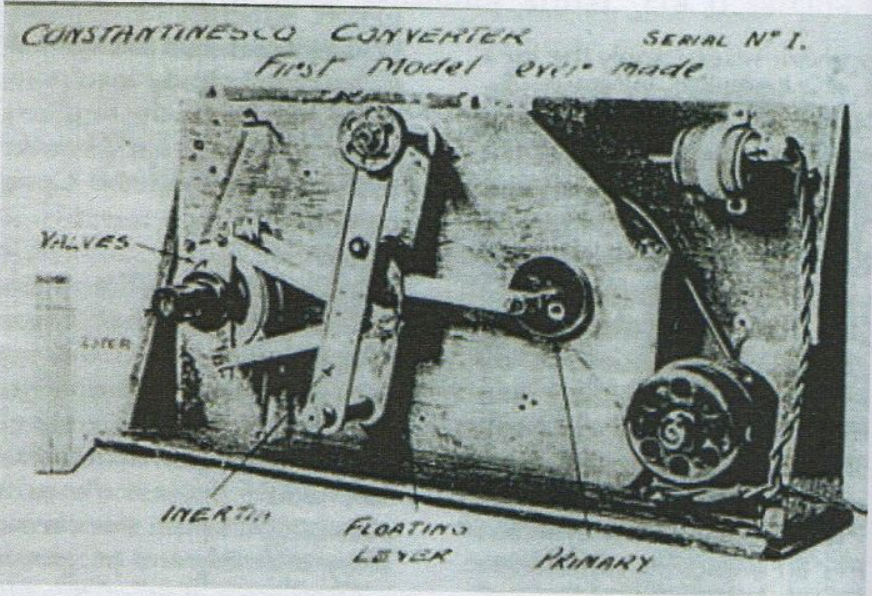 CONSTANTINESCO CONVERTER SERIAL Nº 1.
First Model ever made
VALVES
INERTIA
FLOATING
LEVER
PRIMARY